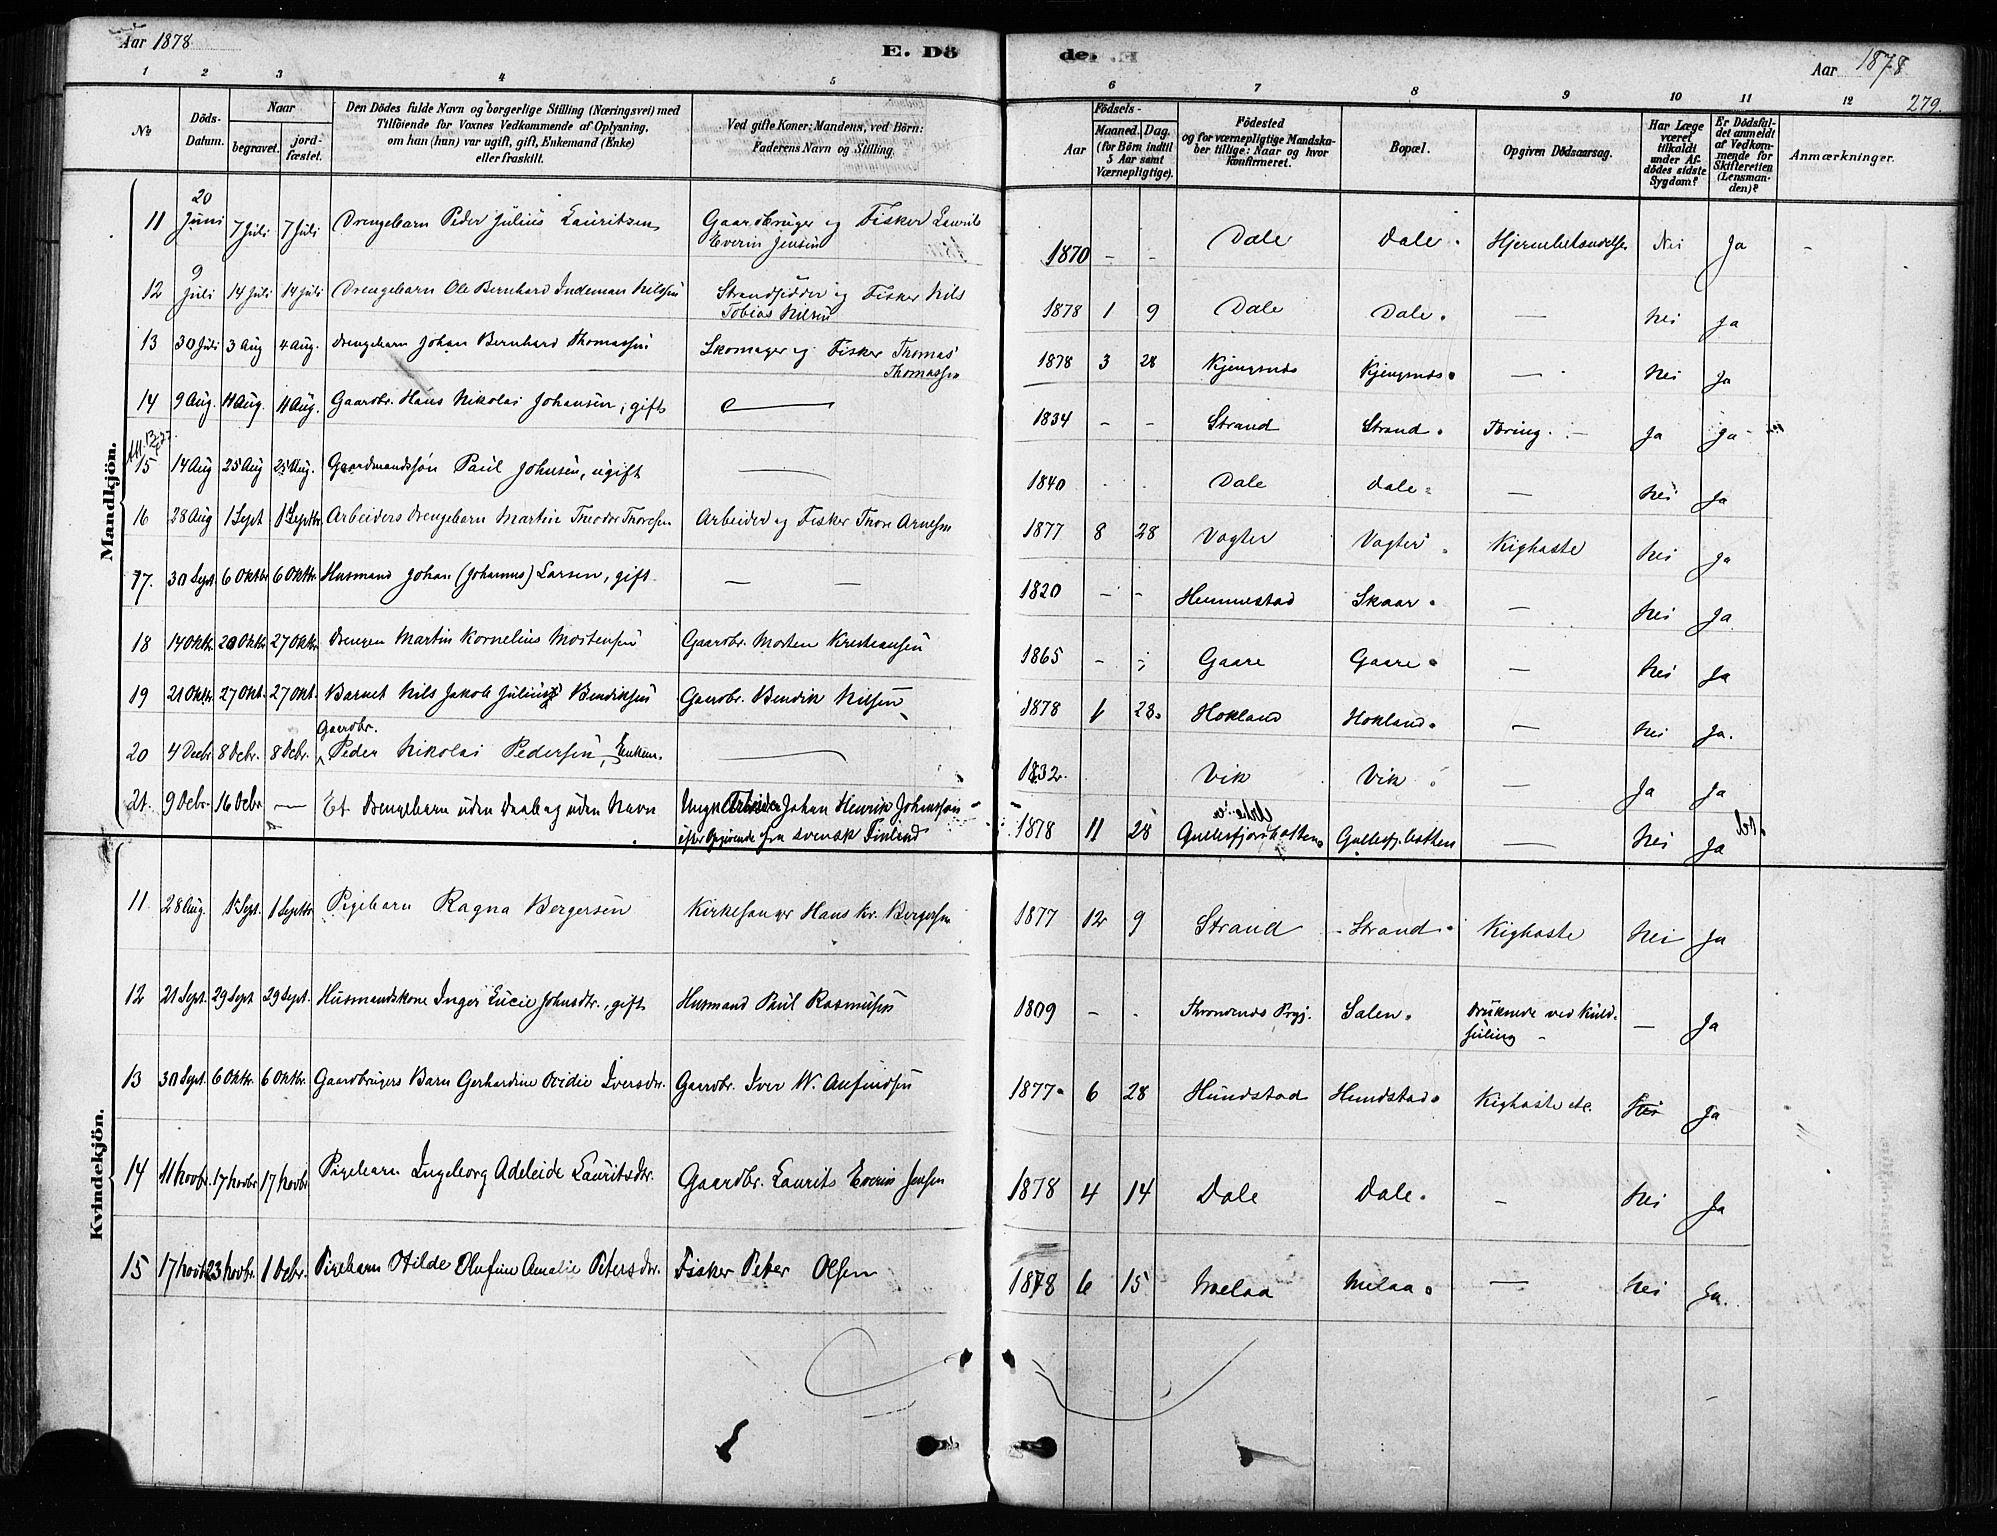 Aar 1878
E. Dö
de.
Aar 1878
279.
1 2 3 4 5 6 7 8 9 10 11 12
No
Döds-Datum.
Naar
begravet.
jord-fæstet.
Den Dödes fulde Navn og borgerlige Stilling (Næringsvei) med
Tilföiende for Voxnes Vedkommende af Oplysning,
om han (hun) var ugift, gift, Enkemand (Enke)
eller fraskilt.
Ved gifte Koner: Mandens, ved Börn:
Faderens Navn og Stilling.
Födsels-
Aar
Maaned. Dag.
(for Börn indtil
5 Aar samt
Værnepligtige).
Födested
og for værnepligtige Mandska-
ber tillige: Naar og hvor
konfirmeret.
Bopæl.
Opgiven Dödsaarsag.
Har Læge
været
tilkaldt
under Af-
dödes sidste
Sygdom?
Er Dödsfal-
det anmeldt
af Vedkom-
mende for
Skifteretten
(Lensman-
den)?
Anmærkninger.
Mandkjön.
11 20 Juni 7 Juli 7 Juli Drengebarn Peder Julius Lauritzen Gaardbruger og Fisker Laurits Everin Jensen 1870 – – Dale Dale. Hjernebetændelse Nei Ja
12 9 Juli 14 Juli 14 Juli Drengebarn Ole Bernhard Indeman Nilssen Strandsidder og Fisker Nils Tobias Nilsen 1878 1 9 Dale Dale. — Nei Ja
13 30 Juli 3 Aug 4 Aug. Drengebarn Johan Bernhard Thomassen Skomager og Fisker Thomas Thomassen 1878 3 28 Kjengsnes Kjengsnes. — Nei Ja
14 9 Aug. 11 Aug. 11 Aug. Gaardbr. Hans Nikolai Johansen, gift — 1834 – – Strand Strand. Tæring. – Ja Ja
15 14 Aug 25 Aug 25 Aug. Gaardmandssøn Paul Johnsen, ugift — 1840 Dale Dale. — Nei Ja
16 28 Aug 1 Sept 1 Septbr Arbeiders Drengebarn Martin Theodor Thoresen Arbeider og Fisker Thore Arnesen 1877 8 28 Vogter Vogter. Kighoste Nei Ja
17. 30 Sept. 6 Oktbr 6 Oktbr. Husmand Johan (Johannes) Larsen, gift. — — 1820 – – Hemmestad Skaar. — Nei Ja
18 14 Oktr. 20 Oktbr 27 Oktbr Drengen Martin Kornelius Mortensen Gaardbr. Morten Kristiansen 1865 – – Gaare Gaare. — Nei Ja
19 21 Oktbr. 27 Okt. 27 Okt. Barnet Nils Jakob Julius Bendiksen Gaardbr. Bendik Nilsen 1878 1 28. Hokland Hokland. — Nei Ja.
20 4 Decbr 8 Decbr. 8 Decbr. Gaardbr. Peder Nikolai Pedersen, Enkem. — 1832. Vik Vik. Ja Ja
21. 9 Decbr. 16 Decbr — Et Drengebarn uden Daab og uden Navn Ungk. Arbeider Johan Henrik Johansson efter Opgivende fra svensk Finland 1878 11 28 Gullesfjordbotten Gullesfj. botten — Nei Ja
Kvindekjön.
11 28 Aug. 1 Sept. 1 Septbr Pigebarn Ragna Bergersen Kirkesanger Hans Kr. Bergersen 1877 12 9 Strand Strand. Kighoste Nei Ja
12 21 Sept. 29 Sept 29 Sept. Husmandskone Inger Lucie Johnsdtr., gift Husmand Paul Rasmusen 1809 – – Throndenes Prgj. Salen. Druknede ved Kuldseiling – — Ja
13 30 Sept. 6 Oktbr 6 Oktbr. Gaardbrugers Barn Gerhardine Ovidie Iversdtr. Gaardbr. Iver W. Anfindsen 1877. 6 28 Hundstad Hundstad. Kighoste etc. Nei Ja
14 11 Novbr. 17 Novbr 17 Novbr. Pigebarn Ingeborg Adeleide Lauritsdtr. Gaardbr. Laurits Everin Jensen 1878 4 14 Dale Dale. — Nei Ja
15 17 Novbr 23 Novbr. 1 Decbr. Pigebarn Otilde Olufine Amalie Petersdtr. Fisker Peter Olsen 1878 6 15 Melaa Melaa. — Nei Ja.